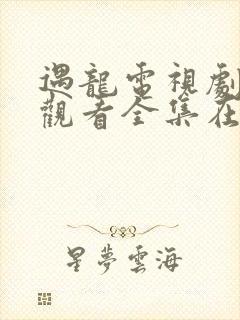 遇龍電視劇
觀看全集在
星夢雲海